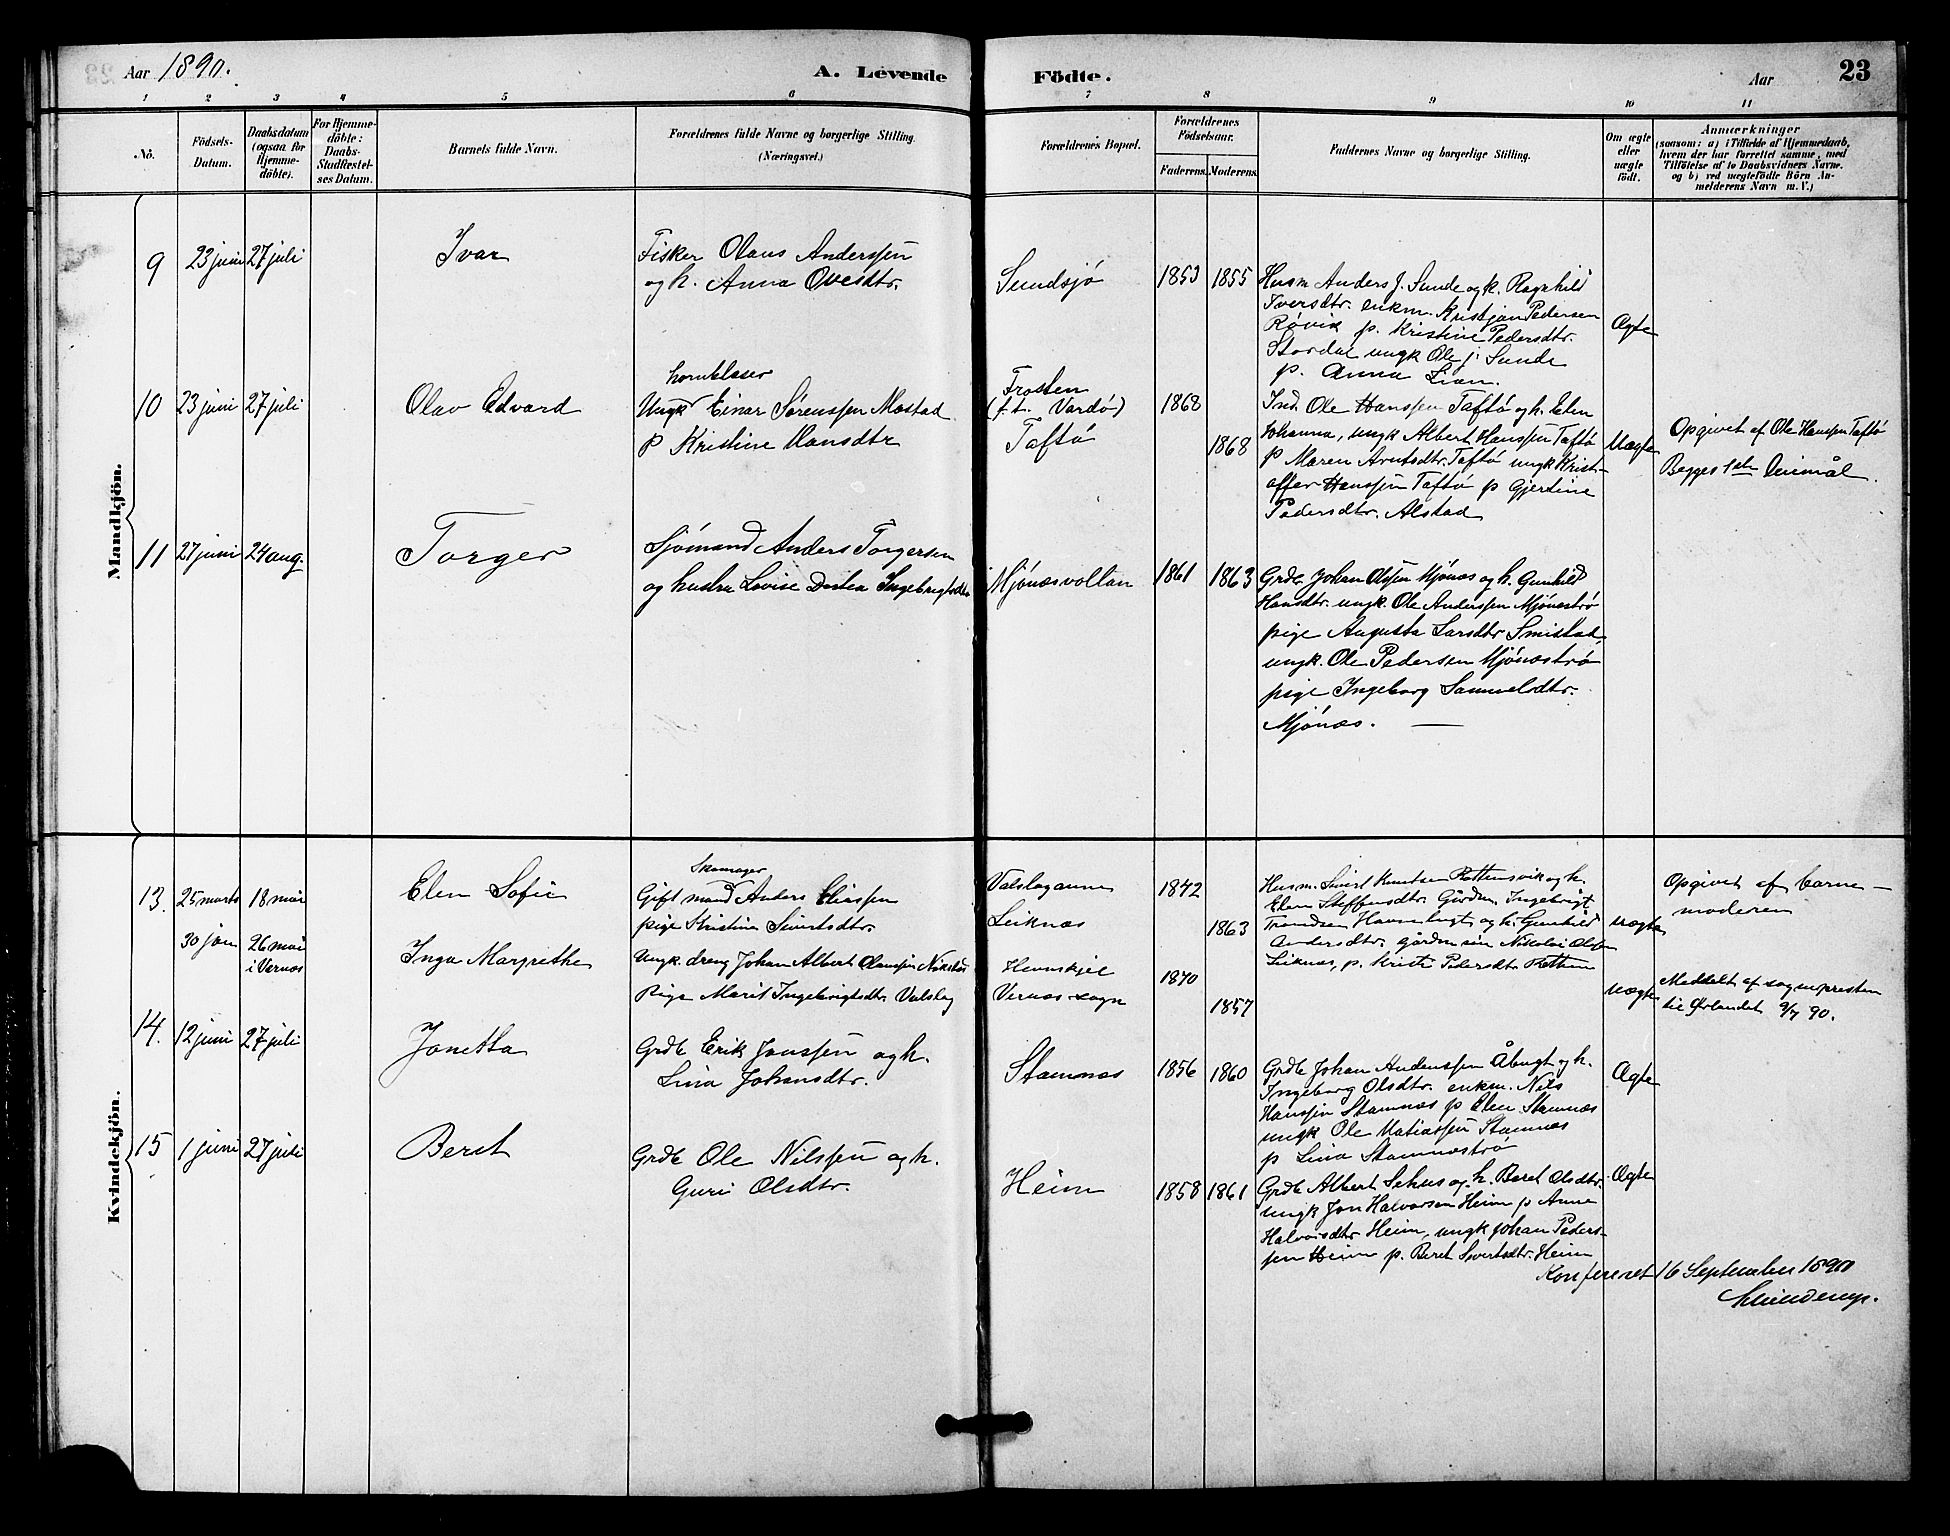 Aar 1890.
A. Levende
Födte.
Aar
23
1
2
3
4
5
6
7
8
9
10
11
Nô.
Födsels-
Datum.
Daabsdatum
(ogsaa for
Hjemme-
döbte).
For Hjemme-
döbte:
Daabs-
Stadfæstel-
ses Datum.
Barnets fulde Navn.
Forældrenes fulde Navne og borgerlige Stilling.
(Næringsvei.)
Forældrenes Bopæl.
Forældrenes
Födselsaar.
Faderens.
Moderens.
Faddernes Navne og borgerlige Stilling.
Om ægte
eller
uægte
födt.
Anmærkninger
(saasom: a) i Tilfælde af Hjemmedaab,
hvem der har forrettet samme, med
Tilföielse af to Daabsvidners Navne.
og b) ved uægtefödte Börn An-
melderens Navn m. V.)
Mandkjön.
9
23 juni
27 juli
Ivar
Fisker Olaus Anderssen
og h. Anna Ovesdtr.
Sundsjö
1853
1855
Husm Anders J. Sunde og k. Ragnhild
Iversdtr. enkm. Kristjan Pedersen
Røvik p. Kristine Pedersdtr.
Stordal ungk Ole J. Sunde
p. Anna Lian.
Ægte
10
23 juni
27 juli
Olav Edvard
hornblaser
Ungk Einar Sørenssen Mostad
p Kristine Hansdtr
Frosten
(f.t. Vardø)
Taftø
1868
1868
Ind. Ole Hanssen Taftø og h. Elen
Johanna, ungk Albert Hanssen Taftø
p Maren Arntsdtr. Taftø ungk Krist-
offer Hanssen Taftø p Gjertine
Pedersdtr. Alstad
Uægte
Opgivet af Ole Hanssen Taftø
Begges 1ste Leiermål.
11
27 juni
24 aug.
Torger
Sjömand Anders Torgersen
og hustru Lovise Dortea Ingebrigtsdtr
Mjónesvollan
1861
1863
Grdb. Johan Olssen Mjónes og h. Gunhild
Hansdtr. ungk. Ole Anderssen Mjóneströ
pige Augusta Larsdtr Smistad,
ungk. Ole Pedersen Mjóneströ
pige Ingeborg Samuelsdtr.
Mjónes.
Kvindekjön.
13.
25 marts
18 mai
Elen Sofie
Skomager
Gift mand Anders Eliassen
pige Kristine Sivertsdtr.
Valslaganne
Leiknes
1842
1863
Husm. Sivert Knutsen Rottemsvik og h.
Elen Steffensdtr. Gårdm. Ingebrigt
Trondsen Havnebugt og h. Gunhild
Andersdtr. gårdm søn Nikolai Olssen
Leiknes, p. Kristi Pedersdtr Rottem
uægte
Opgivet af barne-
moderen
30 jan
26 mai
i Vernes
Inga Margrethe
Ungk. dreng Johan Albert Olaussen
Pige Marit Ingebrigtsdtr. Valslag
Hevnskjel
Vernes sogn
1870
1857
uægte
Meddelt af sognepresten
til Ørlandet 9/7 90.
14.
12 juni
27 juli
Jonetta
Grdb Erik Jonssen og h.
Lina Johansdtr.
Stamnes
1856
1860
Grdb Johan Anderssen Åbugt og h.
Ingeborg Olsdtr. enkm. Nils
Hanssen Stamnes p Elen Stamnes
ungk Ole Matiassen Stamnes
p Lina Stamnestrø
Ægte
15
1 juni
27 juli
Beret
Grdb Ole Nilssen og h.
Guri Olsdtr.
Heim
1858
1861
Grdb Albert Sehus og h. Beret Olsdtr.
ungk Jon Halvorsen Heim p Anne
Halvorsdtr Heim, ungk Johan Peders-
sen Heim p. Beret Sivertsdtr. Heim
Ægte
Konfereret 16 September 1890